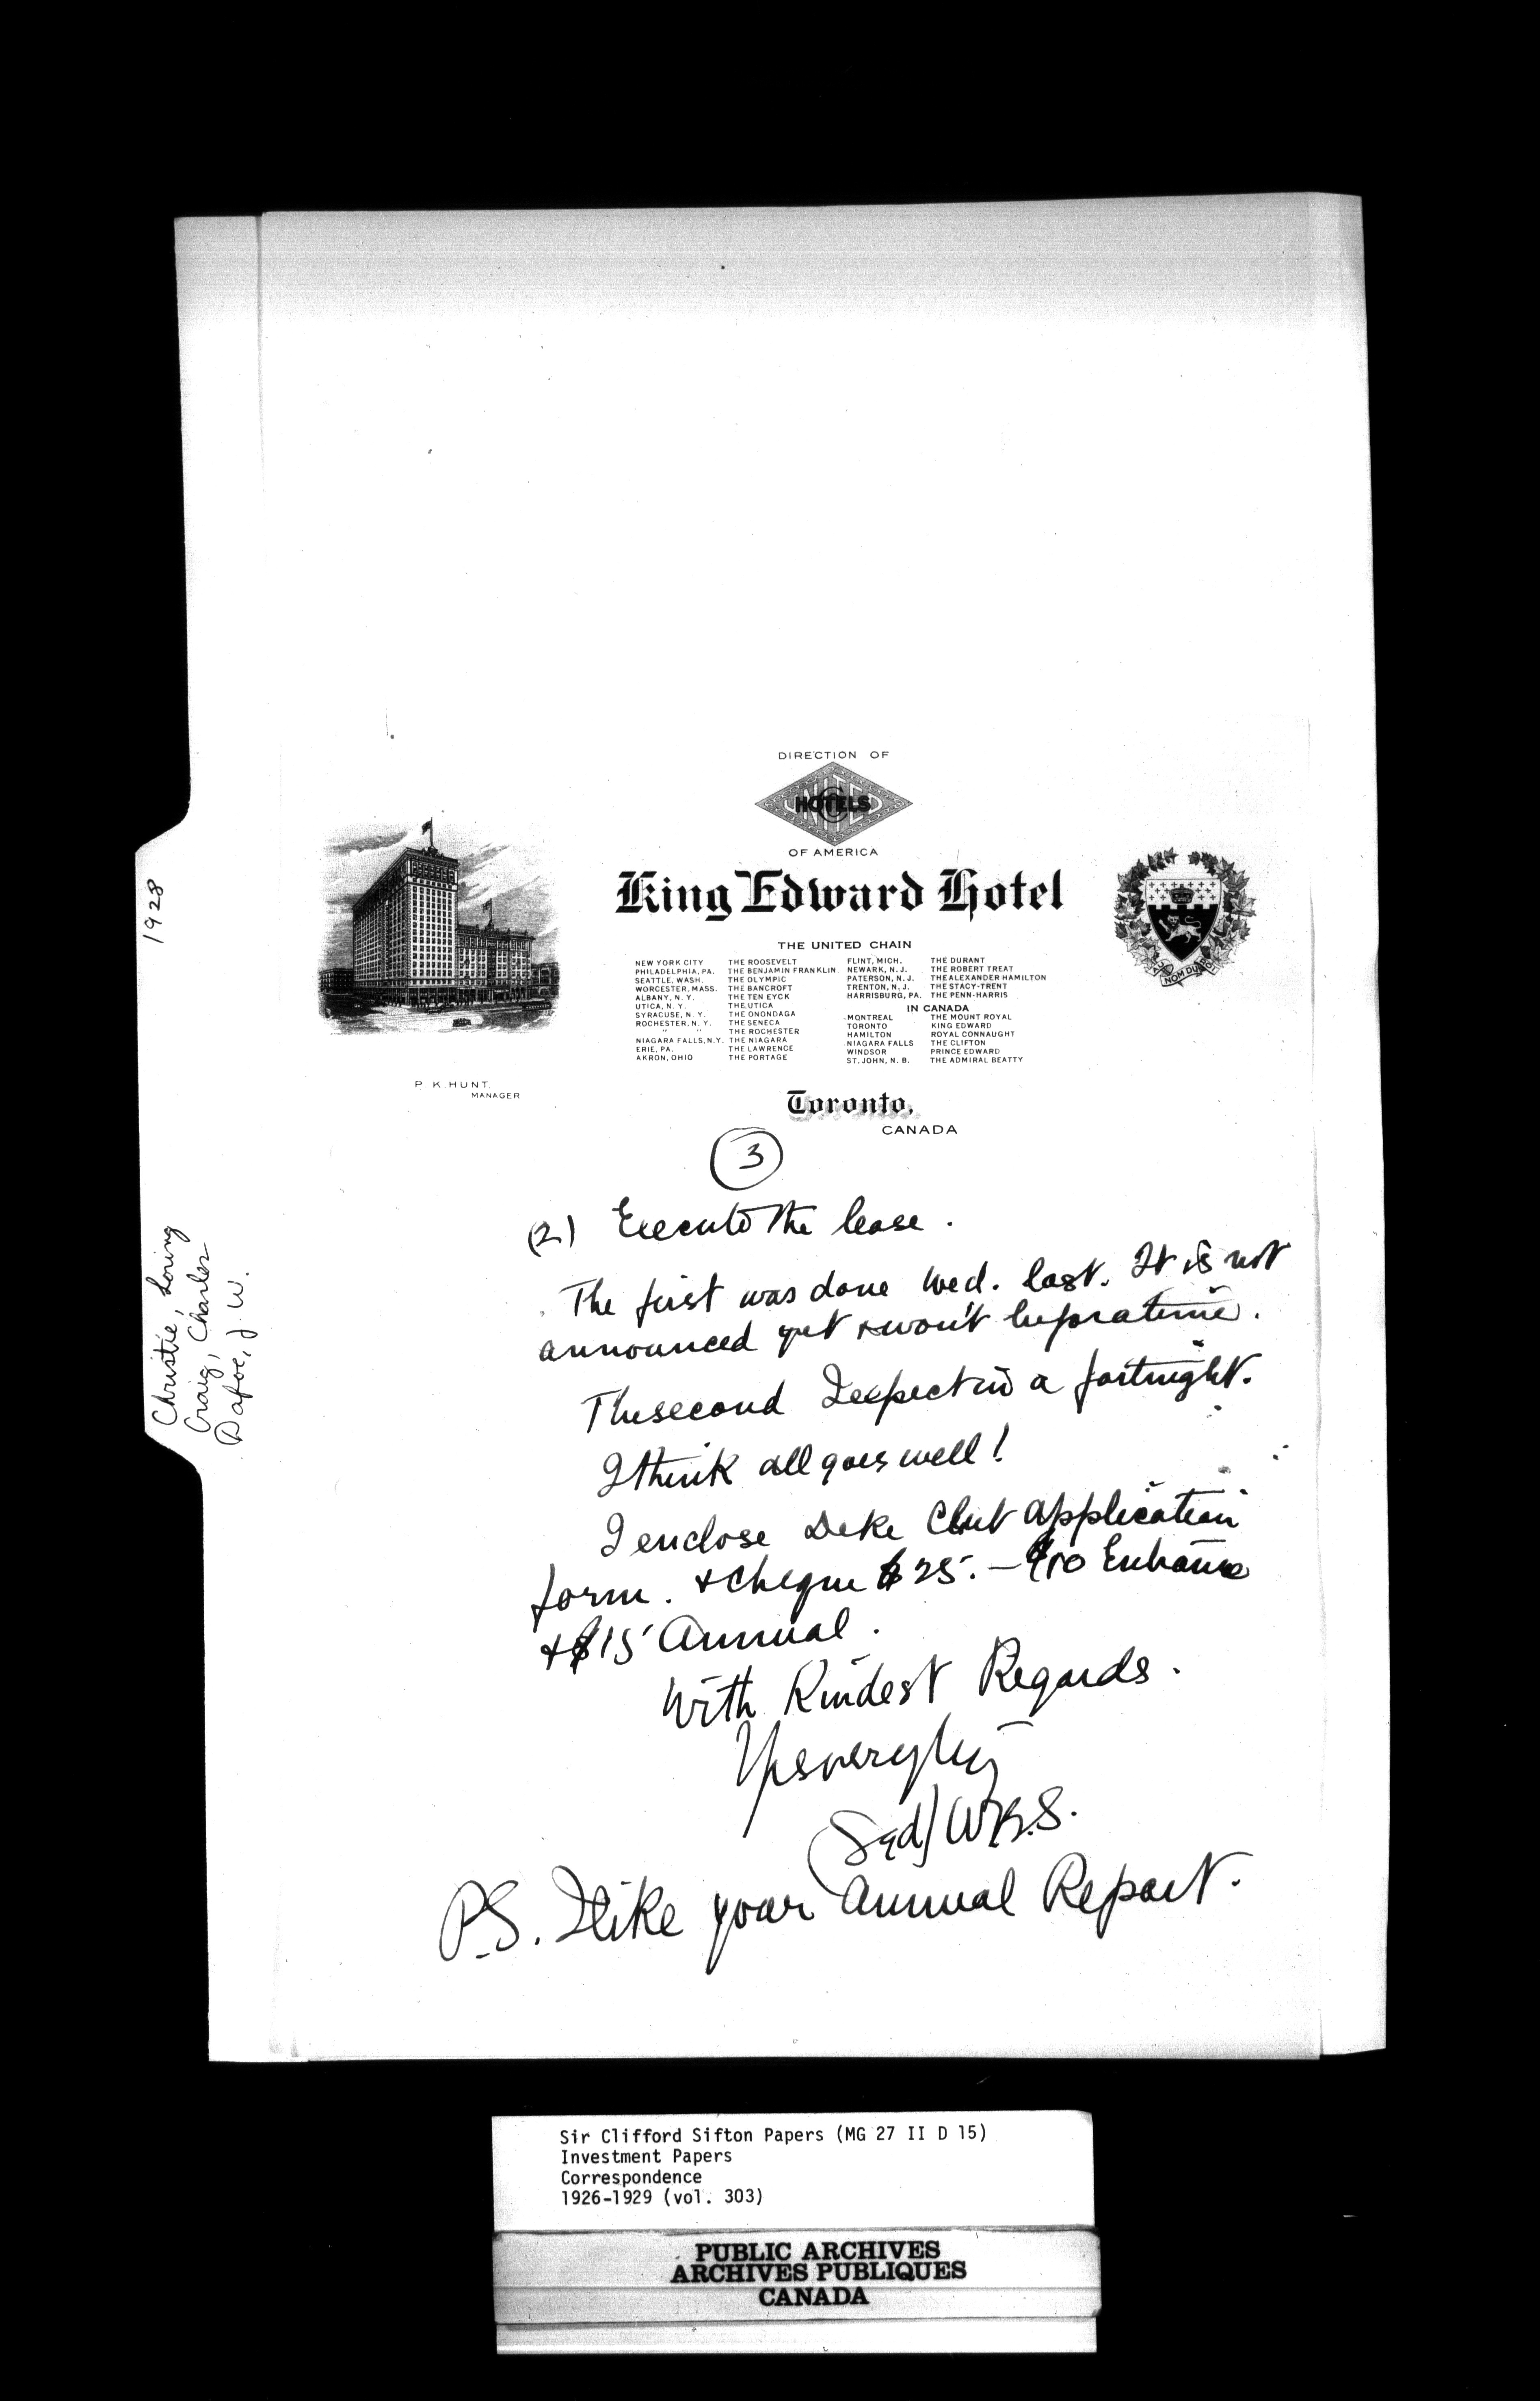 DIRECTION OF
UNITED HOTELS C
OF AMERICA
King Edward Hotel
THE UNITED CHAIN
NEW YORK CITY THE ROOSEVELT
PHILADELPHIA, PA. THE BENJAMIN FRANKLIN
SEATTLE, WASH. THE OLYMPIC
WORCESTER, MASS. THE BANCROFT
ALBANY, N. Y. THE TEN EYCK
UTICA, N. Y. THE UTICA
SYRACUSE, N. Y. THE ONONDAGA
ROCHESTER, N. Y. THE SENECA
" " THE ROCHESTER
NIAGARA FALLS, N.Y. THE NIAGARA
ERIE, PA. THE LAWRENCE
AKRON, OHIO THE PORTAGE
FLINT, MICH. THE DURANT
NEWARK, N. J. THE ROBERT TREAT
PATERSON, N. J. THE ALEXANDER HAMILTON
TRENTON, N. J. THE STACY-TRENT
HARRISBURG, PA. THE PENN-HARRIS
IN CANADA
MONTREAL THE MOUNT ROYAL
TORONTO KING EDWARD
HAMILTON ROYAL CONNAUGHT
NIAGARA FALLS THE CLIFTON
WINDSOR PRINCE EDWARD
ST. JOHN, N. B. THE ADMIRAL BEATTY
P. K. HUNT.
MANAGER
Toronto,
CANADA
3
(2) Execute the lease.
The first was done Wed. last. It is not
announced yet & won't be for a time.
The second I expect in a fortnight.
I think all goes well!
I enclose Deke Club application
form. & cheque $25. — $10 Entrance
& $15 Annual.
With Kindest Regards.
Yrs very truly
(Sgd) W.B.S.
P.S. I like your Annual Report.
1928
Christie, Loring
Craig, Charles
Dafoe, J. W.
Sir Clifford Sifton Papers (MG 27 II D 15)
Investment Papers
Correspondence
1926-1929 (vol. 303)
PUBLIC ARCHIVES
ARCHIVES PUBLIQUES
CANADA